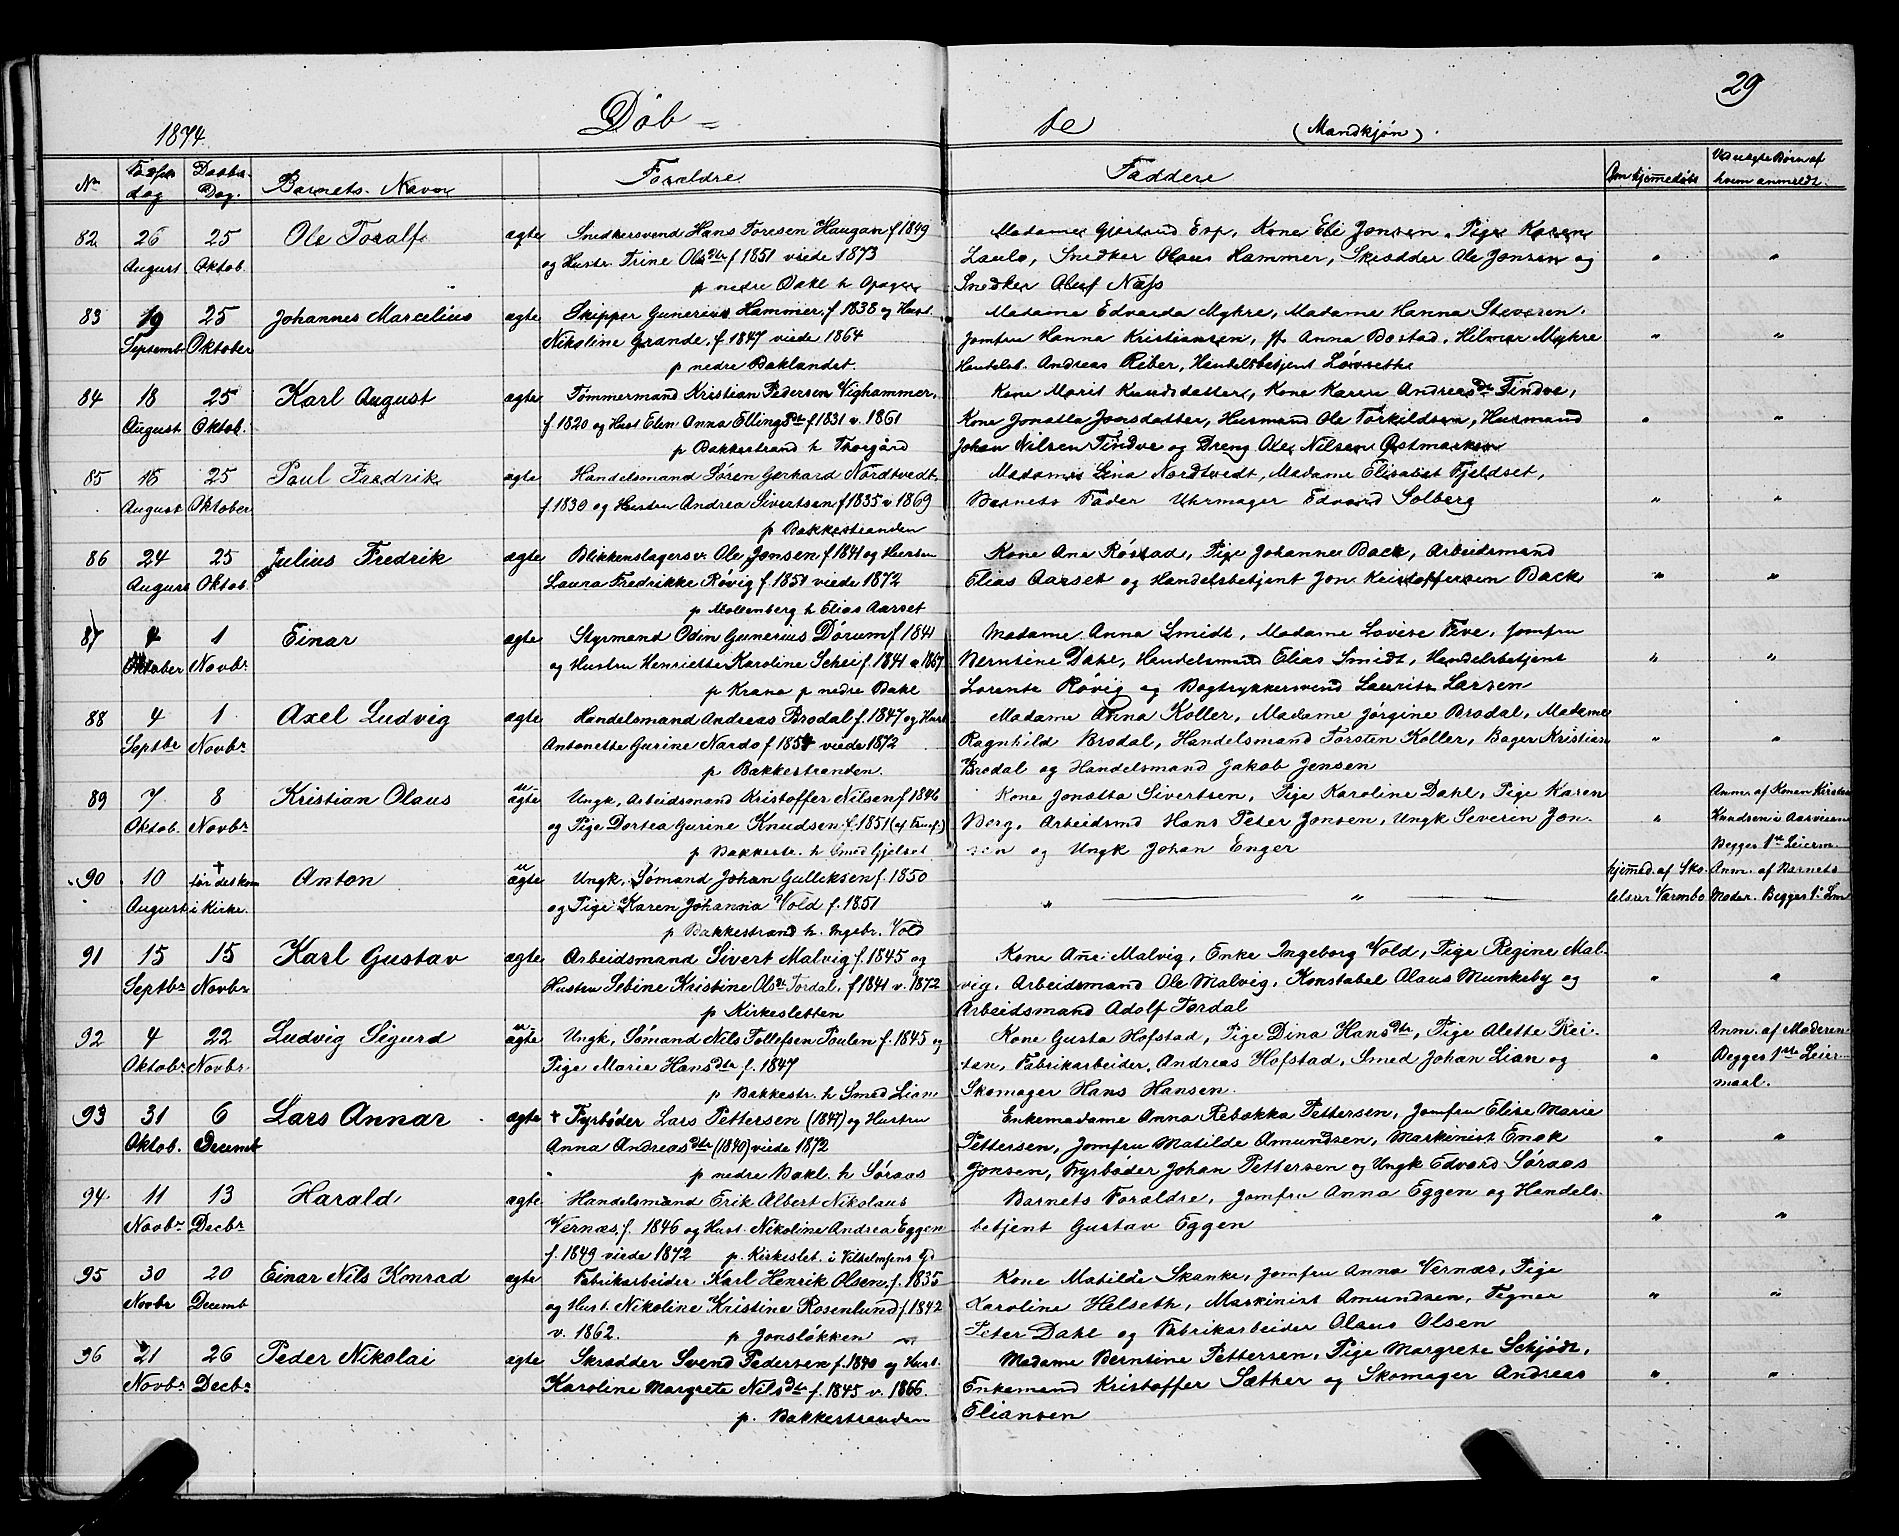 29
1874. Döb= te (Mandkjøn).
No Fødselsdag Daabs-Dag. Barnets Navn Forældre. Faddere Om hjemmedøbt Ved uægte Børn af hvem anmeldt.
82 26 25 Ole Toralf ægte Snedkersvend Hans Toresen Haugan f 1849 Madame Gjertrud Esp, Kone Eli Jonsen, Pige Karen
August Oktob. og Hustr. Trine Olsdtr f 1851 viede 1873 Laulo, Snedker Olaus Hammer, Skrædder Ole Jonsen og " "
p nedre Bakl h Aspaas Snedker Oluf Næss
83 19 25 Johannes Marcelius ægte Skipper Gunerius Hammer, f 1838 og Hust. Madame Edvarda Mykre, Madame Hanna Steversen.
Septemb Oktober Nikoline Grande, f. 1847 viede 1864 Jomfru Hanna Kristiansen, Jf. Anna Bostad, Hilmar Mykre " "
p nedre Baklandet. Handelsb. Andreas Reber, Handelsbetjent Løvseth
84 18 25 Karl August ægte Tømmermand Kristian Pedersen Vighammer, Kone Marit Knudsdatter, Kone Karen Andreasdtr Tindve,
August Oktob. f. 1820 og Hust Elen Anna Ellingsdtr f 1831 v. 1861 Kone Jonetta Jonsdatter, Husmand Ole Torkildsen, Husmand " "
p Bakkestrand h Thorgård Johan Nilsen Tindve og Dreng Ole Nilsen Østmarken
85 16 25 Paul Fredrik ægte Handelsmand Søren Gerhard Nordtvedt Madame Lina Nordtvedt, Madame Elisabet Fjeldset,
August Oktober f. 1830 og Hustru Andrea Sivertsen f 1835 v 1869 Barnets Fader Uhrmager Edvard Solberg " "
p Bakkestranden
86 24 25 Julius Fredrik ægte Blikkenslagersv. Ole Jonsen f 1841 og Hustru Kone Ane Röstad, Pige Johanne Back, Arbeidsmand
August Oktob Laura Fredrikke Røvig f 1851 viede 1872 Elias Aarset og Handelsbetjent Jon Kristoffersen Back " "
p Møllenberg h Elias Aarset
87 4 1 Einar ægte Styrmand Odin Gunerius Dörum f 1841 Madame Anna Smidt, Madame Lovise Five, Jomfru
Oktober Novbr. og Hustru Henriette Karoline Schei f 1841 v 1867 Berntine Dahl, Handelsmand Elias Smidt, Handelsbetjent " "
p Krana p nedre Bakl Lorents Røvig og Bogtrykkersvend Laurits Larsen
88 4 1 Axel Ludvig ægte Handelsmand Andreas Brodal f 1847 og Hust Madame Anna Koller, Madame Jörgine Brodal, Madame
Septbr Novbr. Antonette Gurine Nardo f 1854 viede 1872 Ragnhild Brodal, Handelsmand Torsten Koller, Bager Kristian " "
p Bakkestranden. Brodal og Handelsmand Jakob Jensen
89 7 8 Kristian Olaus uægte Ungk, Arbeidsmand Kristoffer Nilsen f 1846 Kone Jonetta Sivertsen, Pige Karoline Dahl, Pige Karen Anm. af Konen Kirsten
Oktob. Novbr og Pige Dortea Gurine Knudsen f. 1851 Berg, Arbeidsmd Hans Peter Jonsen, Ungk Severin Jon- " Knudsen i
p Bakkestr. h Smed Gjelset sen og Ungk Johan Enger Begges 1ste Leierm.
90 10 † før det kom Anton uægte Ungk, Sømand Johan Gulliksen f. 1850 hjemmd. af Sko- Anm. af Barnets
August i Kirke. og Pige Karen Johanna Vold f. 1851 " " belærer Varmbo Moder. Begges 1ste Lm
p Bakkestrand h. Ingebr. Vold
91 15 15 Karl Gustav ægte Arbeidsmand Sivert Malvig f. 1845 og Kone Ane Malvig, Enke Ingeborg Vold, Pige Regine Mal-
Septbr Novbr Hustru Sebine Kristine Olsdtr Tordal, f 1841 v. 1872 vig, Arbeidsmand Ole Malvig, Konstabel Olaus Munkeby og " "
p Kirkesletten Arbeidsmand Adolf Tordal
92 4 22 Ludvig Sigurd uægte Ungk, Sømand Nils Tollefsen Poulen f. 1845 og Kone Gusta Hofstad, Pige Dina Hansdtr, Pige Alette Rei- Anm. af Moderen
Oktobr Novbr. Pige Marie Hansdtr f. 1847 tan, Fabrikarbeider, Andreas Hofstad, Smed Johan Lian og " Begges 1ste Leier-
p Bakkestr. h Smed Lian Skomager Hans Hansen. maal.
93 31 6 Lars Annar ægte + Fyrbøder Lars Pettersen (1847) og Hustru Enkemadame Anna Rebekka Pettersen, Jomfru Elise Marie
Oktob. Decemb Anna Andreasdtr (1840) viede 1872 Pettersen, Jomfru Matilde Amundsen, Maskinist Enok " "
p nedre Bakl. h Söraas Jonsen, Fyrbøder Johan Pettersen og Ungk Edvard Söraas
94. 11 13 Harald ægte Handelsmand Erik Albert Nikolaus Barnets Forældre, Jomfru Anna Eggen og Handels-
Novbr Decbr Vernæs, f. 1846 og Hust. Nikoline Andrea Eggen betjent Gustav Eggen " "
f. 1849 viede 1872 p. Kirkeslet. i Vilhelmsens Gd
95 30 20 Einar Nils Konrad ægte Fabrikarbeider Karl Henrik Olsen, f. 1835 Kone Matilde Skanke, Jomfru Anna Vernæs, Pige
Novbr Decemb og Hust. Nikoline Kristine Rosenlund f. 1842 Karoline Helseth, Maskinist Amundsen, Tegner " "
v. 1862. p Jonsløkken Peter Dahl og Fabrikarbeider Olaus Olsen
96 21 26 Peder Nikolai ægte Skrædder Svend Pedersen f. 1840 og Hust. Madame Berntine Pettersen, Pige Margrete Schjødt,
Novbr Decbr Karoline Margrete Nilsdtr f. 1845 v. 1866. Enkemand Kristoffer Sæther og Skomager Andreas " "
p. Bakkestranden Eliansen